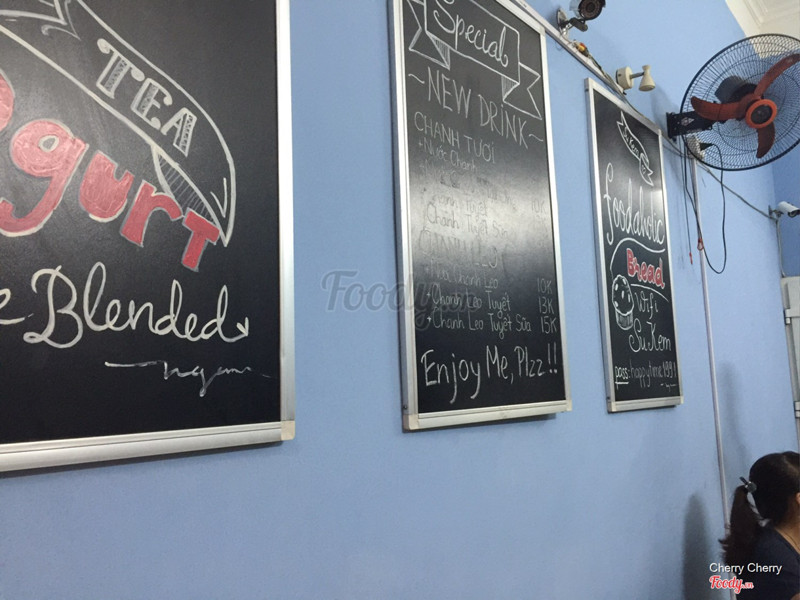 TEA
ogurt
Blended
Special
~NEW DRINK~
CHANH TƯƠI
+ Nước Chanh
Chanh Tuyết Sữa
10K
Chanh Leo Tuyết 13K
+ Chanh Leo Tuyết Sữa 15K
Enjoy Me, Plzz!!
foodaholic
Bread
Wifi
Su Kem
pass: happytime1991
Foody.vn
Cherry Cherry
Foody.vn